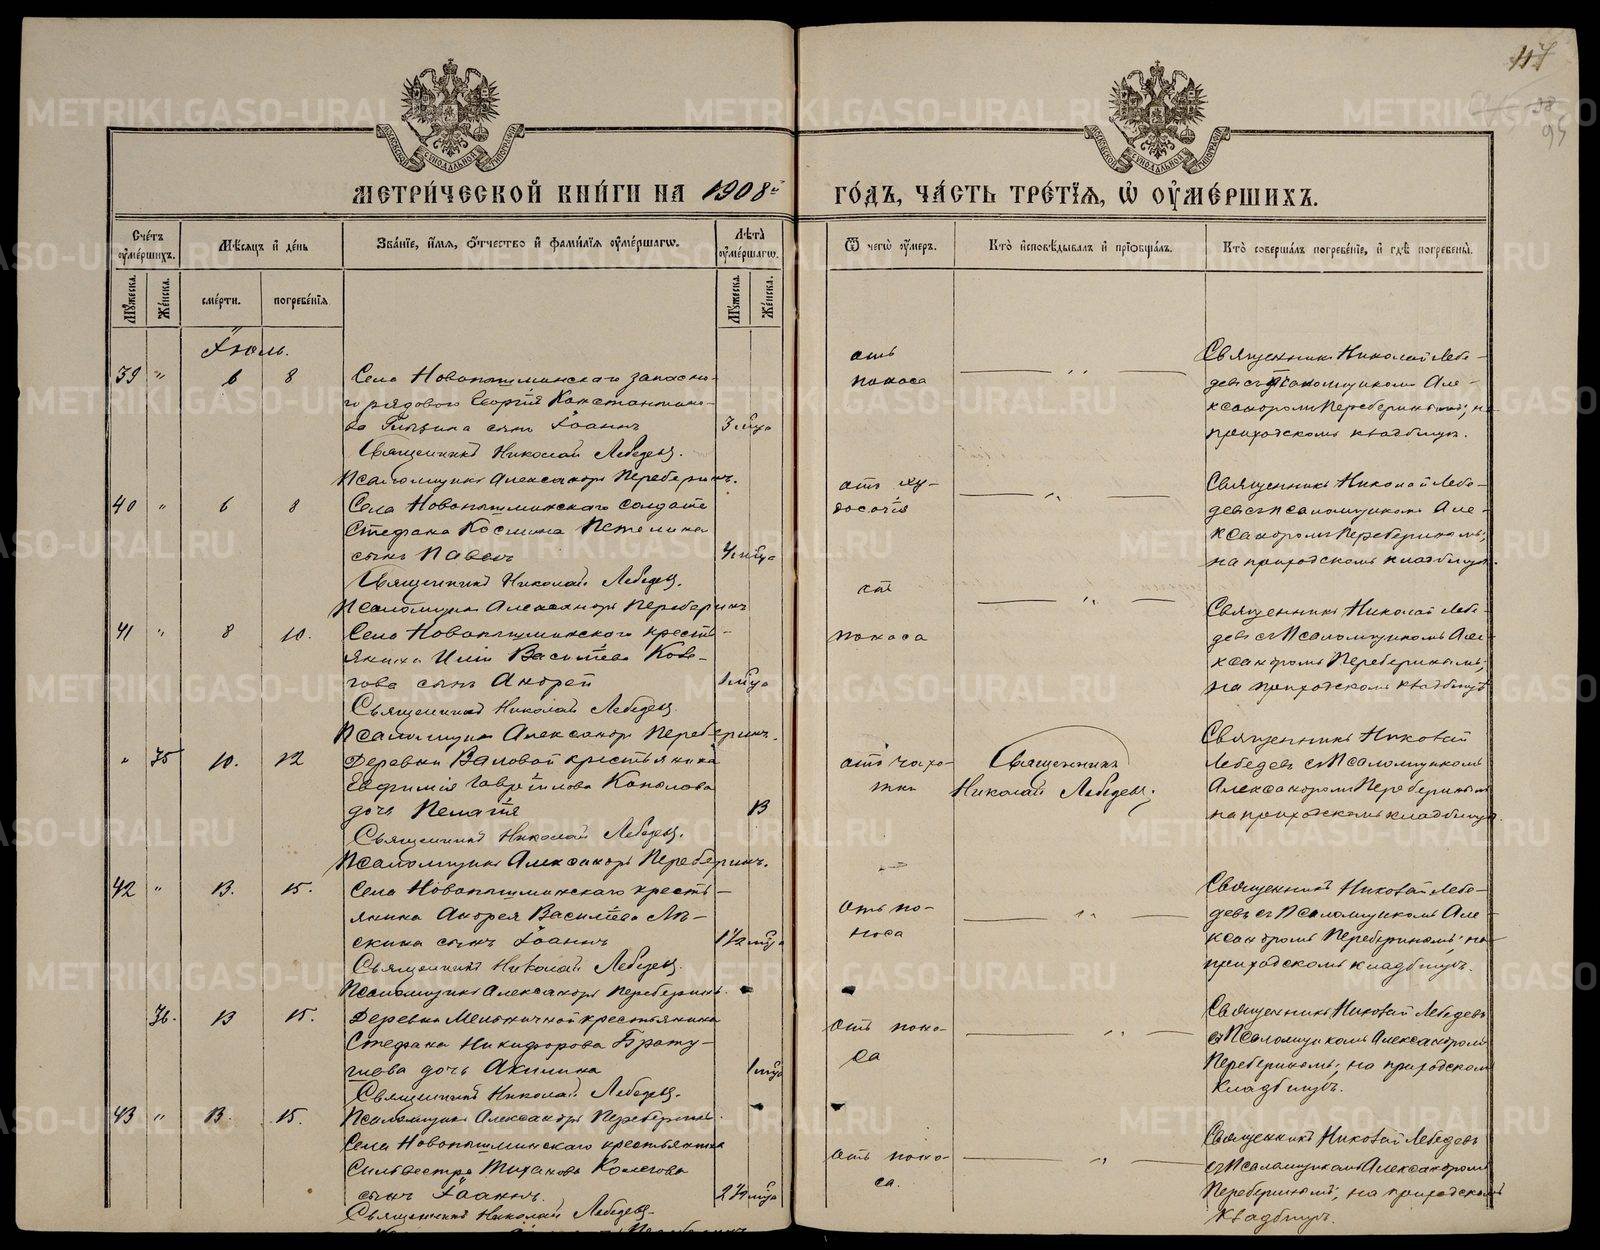 117
98
95
МЕТРИ́ЧЕСКОЙ КНИ́ГИ НА 1908й
ГО́ДЪ, ЧА́СТЬ ТРЕ́ТІѦ, Ѡ҆ ОУ҆МЕ́РШИХЪ.
Сче́тъ оу҆ме́ршихъ.
Мѣ́сяцъ и҆ де́нь
Зва́нїе, и҆́мя, ѻ҆́тчество и҆ фами́лїя оу҆ме́ршагѡ.
Лѣ́та оу҆ме́ршагѡ.
Ѿ чегѡ̀ оу҆́меръ.
Кто̀ и҆сповѣ́дывалъ и҆ прїѡбща́лъ.
Кто̀ соверша́лъ погребе́нїе, и҆ гдѣ̀ погребены̀.
Мꙋ́жеска.
Же́нска.
сме́рти.
погребе́нїя
Мꙋ́жеска.
Же́нска.
Іюль.
39 " 6 8
Села Новопышминскаго запасно-
го рядового Георгія Константино-
ва сынъ Іоаннъ
3 мѣца
Священникъ Николай Лебедевъ.
Псаломщикъ Александръ Переберинъ.
отъ
поноса
"
Священникъ Николай Лебе-
девъ съ Псаломщикомъ Але-
ксандромъ Переберинымъ; на
приходскомъ кладбищѣ.
40 " 6 8
Села Новопышминскаго солдата
Стефана Космина Пстелина
сынъ Павелъ
4 мѣца
Священникъ Николай Лебедевъ.
Псаломщикъ Александръ Переберинъ
отъ ху-
досочія
"
Священникъ Николай Лебе-
девъ съ псаломщикомъ Але-
ксандромъ Переберинымъ;
на приходскомъ кладбищѣ.
41 " 8 10.
Села Новопышминскаго кресть-
янина Иліи Васильева Коле-
гова сынъ Андрей
1 мѣца
Священникъ Николай Лебедевъ.
Псаломщикъ Александръ Переберинъ.
отъ
поноса
"
Священникъ Николай Лебе-
девъ съ Псаломщикомъ Але-
ксандромъ Переберинымъ;
на приходскомъ кладбищѣ
" 35 10. 12
Деревни Валовой крестьянина
Евфимія Гаврійлова Конылова
дочь Пелагія
13
Священникъ Николай Лебедевъ.
Псаломщикъ Александръ Переберинъ.
отъ чахо-
тки
Священникъ
Николай Лебедевъ;
Священникъ Николай
Лебедевъ съ Псаломщикомъ
Александромъ Переберинымъ
на приходскомъ кладбищѣ.
42 " 13. 15.
Села Новопышминскаго кресть-
янина Андрея Васильева Ля-
скина сынъ Іоаннъ
1 1/2 мѣца
Священникъ Николай Лебедевъ.
Псаломщикъ Александръ Переберинъ.
Отъ по-
носа
"
Священникъ Николай Лебе-
девъ съ Псаломщикомъ Але-
ксандромъ Переберинымъ; на
приходскомъ кладбищѣ.
36. 13 15.
Деревни Мельничной крестьянина
Стефана Никифорова Брату-
шева дочь Акилина
1 мѣца
Священникъ Николай Лебедевъ.
Псаломщикъ Александръ Переберинъ.
отъ поно-
са
"
Священникъ Николай Лебедевъ
съ Псаломщикомъ Александромъ
Переберинымъ; на приходскомъ
кладбищѣ.
43 " 13. 15.
Села Новопышминскаго крестьянина
Сильвестра Тиханова Колегова
сынъ Іоаннъ.
2 1/2 мѣца
Священникъ Николай Лебедевъ.
отъ поно-
са.
"
Священникъ Николай Лебедевъ
съ Псаломщикомъ Александромъ
Переберинымъ; на приходскомъ
кладбищѣ.
METRIKI.GASO-URAL.RU